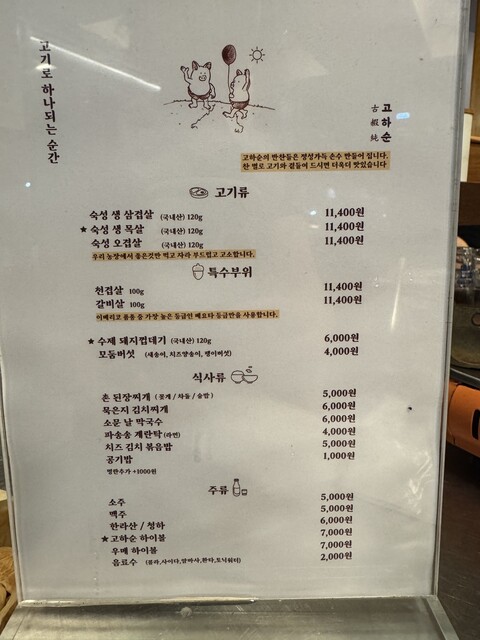 고기로 하나되는 순간
고하순
古蝦純
고하순의 반찬들은 정성가득 손수 만들어 집니다.
찬 별로 고기와 곁들여 드시면 더욱더 맛있습니다
고기류
숙성 생 삼겹살 (국내산) 120g 11,400원
★ 숙성 생 목살 (국내산) 120g 11,400원
숙성 오겹살 (국내산) 120g 11,400원
우리 농장에서 좋은것만 먹고 자라 부드럽고 고소합니다.
특수부위
천겹살 100g 11,400원
갈비살 100g 11,400원
이베리코 품종 중 가장 높은 등급인 베요타 등급만을 사용합니다.
★ 수제 돼지껍데기 (국내산) 120g 6,000원
모둠버섯 (새송이, 치즈양송이, 팽이버섯) 4,000원
식사류
촌 된장찌개 (꽃게 / 차돌 / 술밥) 5,000원
묵은지 김치찌개 6,000원
소문 날 막국수 6,000원
파송송 계란탁 (라면) 4,000원
치즈 김치 볶음밥 5,000원
공기밥 1,000원
명란추가 +1000원
주류
소주 5,000원
맥주 5,000원
한라산 / 청하 6,000원
★ 고하순 하이볼 7,000원
우메 하이볼 7,000원
음료수 (콜라,사이다,갈아사,환타,토닉워터) 2,000원